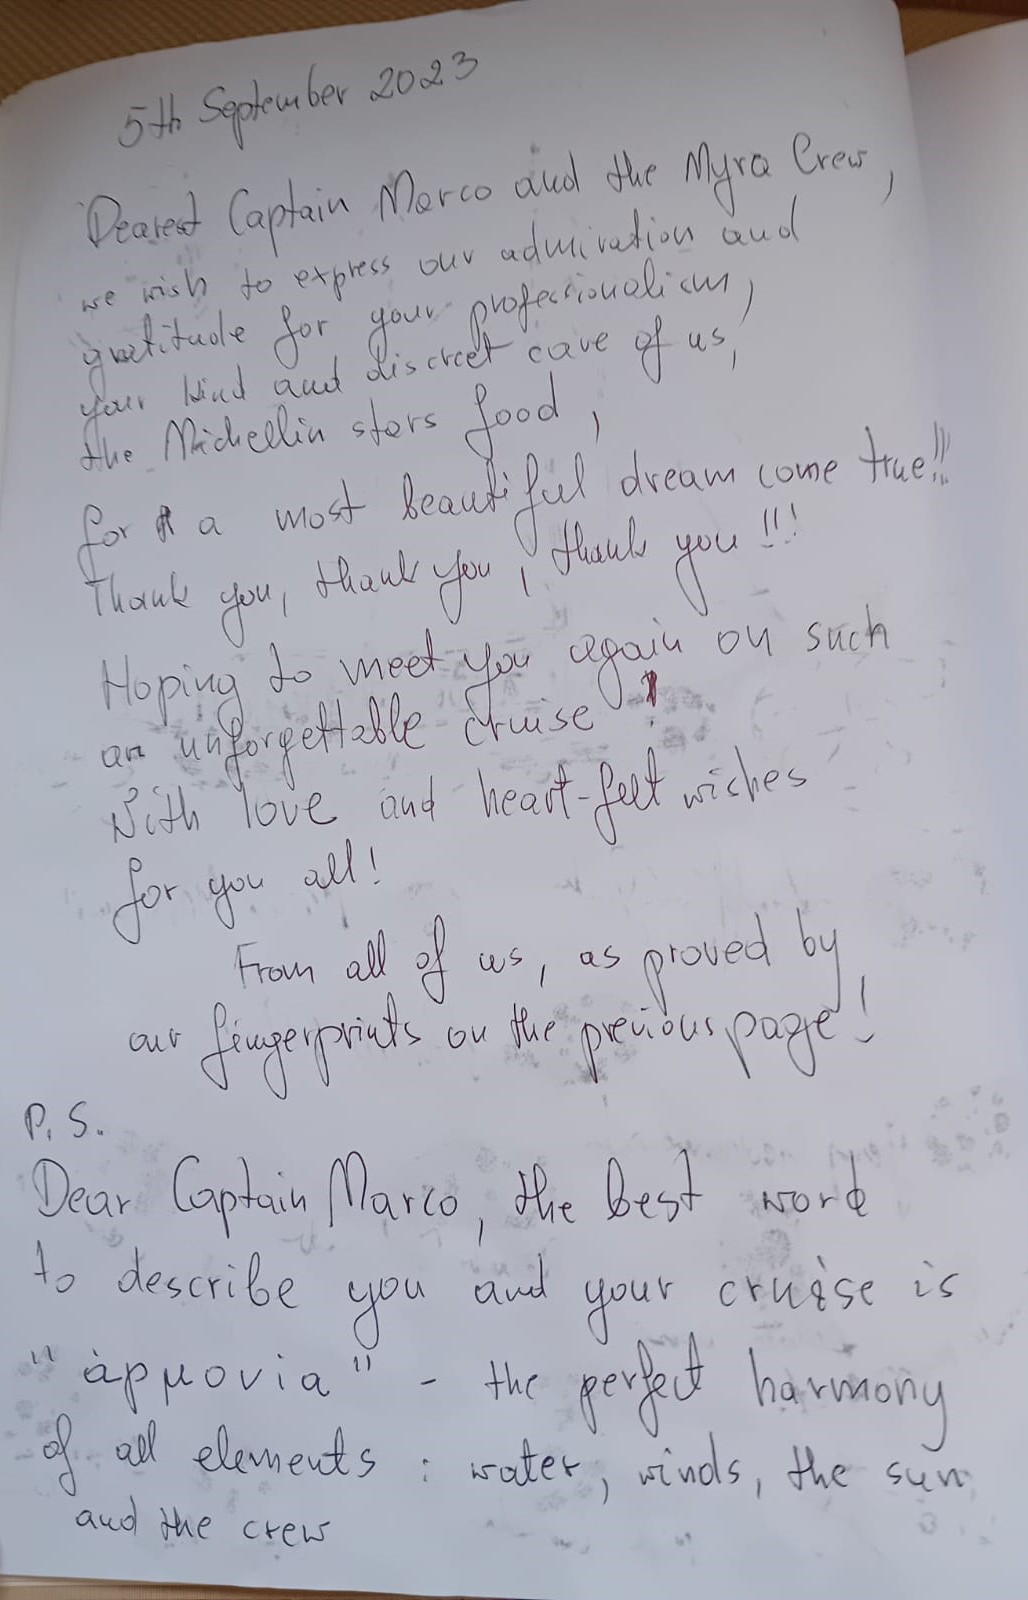 5th September 2023
Dearest Captain Marco and the Myra Crew,
we wish to express our admiration and
gratitude for your professionalism,
your kind and discreet care of us,
the Michellin stars food,
for a most beautiful dream come true!!!
Thank you, thank you, thank you!!!
Hoping to meet you again on such
an unforgettable cruise!
With love and heart-felt wishes
for you all!
From all of us, as proved by
our fingerprints on the previous page!
P.S.
Dear Captain Marco, the best word
to describe you and your cruise is
"άρμονία" - the perfect harmony
of all elements: water, winds, the sun
and the crew